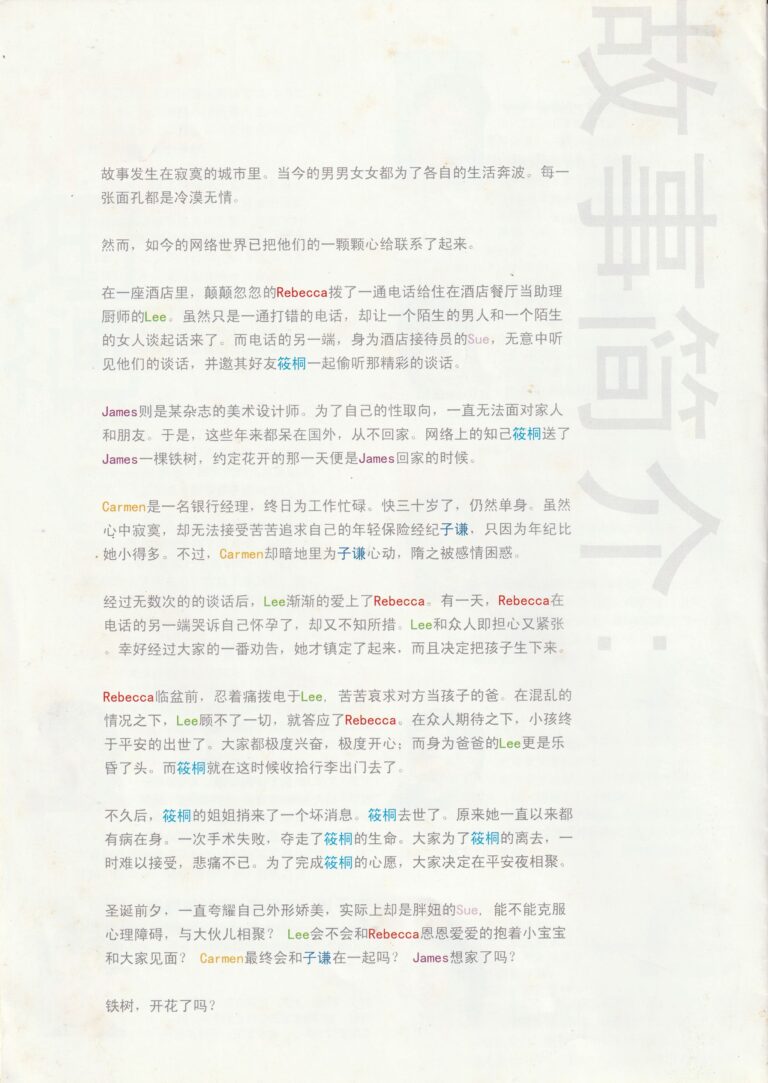 故事简介：
故事发生在寂寞的城市里。当今的男男女女都为了各自的生活奔波。每一
张面孔都是冷漠无情。
然而，如今的网络世界已把他们的一颗颗心给联系了起来。
在一座酒店里，颠颠忽忽的Rebecca拨了一通电话给住在酒店餐厅当助理
厨师的Lee。虽然只是一通打错的电话，却让一个陌生的男人和一个陌生
的女人谈起话来了。而电话的另一端，身为酒店接待员的Sue，无意中听
见他们的谈话，并邀其好友筱桐一起偷听那精彩的谈话。
James则是某杂志的美术设计师。为了自己的性取向，一直无法面对家人
和朋友。于是，这些年来都呆在国外，从不回家。网络上的知己筱桐送了
James一棵铁树，约定花开的那一天便是James回家的时候。
Carmen是一名银行经理，终日为工作忙碌。快三十岁了，仍然单身。虽然
心中寂寞，却无法接受苦苦追求自己的年轻保险经纪子谦，只因为年纪比
她小得多。不过，Carmen却暗地里为子谦心动，隋之被感情困惑。
经过无数次的的谈话后，Lee渐渐的爱上了Rebecca。有一天，Rebecca在
电话的另一端哭诉自己怀孕了，却又不知所措。Lee和众人即担心又紧张
。幸好经过大家的一番劝告，她才镇定了起来，而且决定把孩子生下来。
Rebecca临盆前，忍着痛拨电于Lee，苦苦哀求对方当孩子的爸。在混乱的
情况之下，Lee顾不了一切，就答应了Rebecca。在众人期待之下，小孩终
于平安的出世了。大家都极度兴奋，极度开心；而身为爸爸的Lee更是乐
昏了头。而筱桐就在这时候收拾行李出门去了。
不久后，筱桐的姐姐捎来了一个坏消息。筱桐去世了。原来她一直以来都
有病在身。一次手术失败，夺走了筱桐的生命。大家为了筱桐的离去，一
时难以接受，悲痛不已。为了完成筱桐的心愿，大家决定在平安夜相聚。
圣诞前夕，一直夸耀自己外形娇美，实际上却是胖妞的Sue，能不能克服
心理障碍，与大伙儿相聚？ Lee会不会和Rebecca恩恩爱爱的抱着小宝宝
和大家见面？ Carmen最终会和子谦在一起吗？ James想家了吗？
铁树，开花了吗？